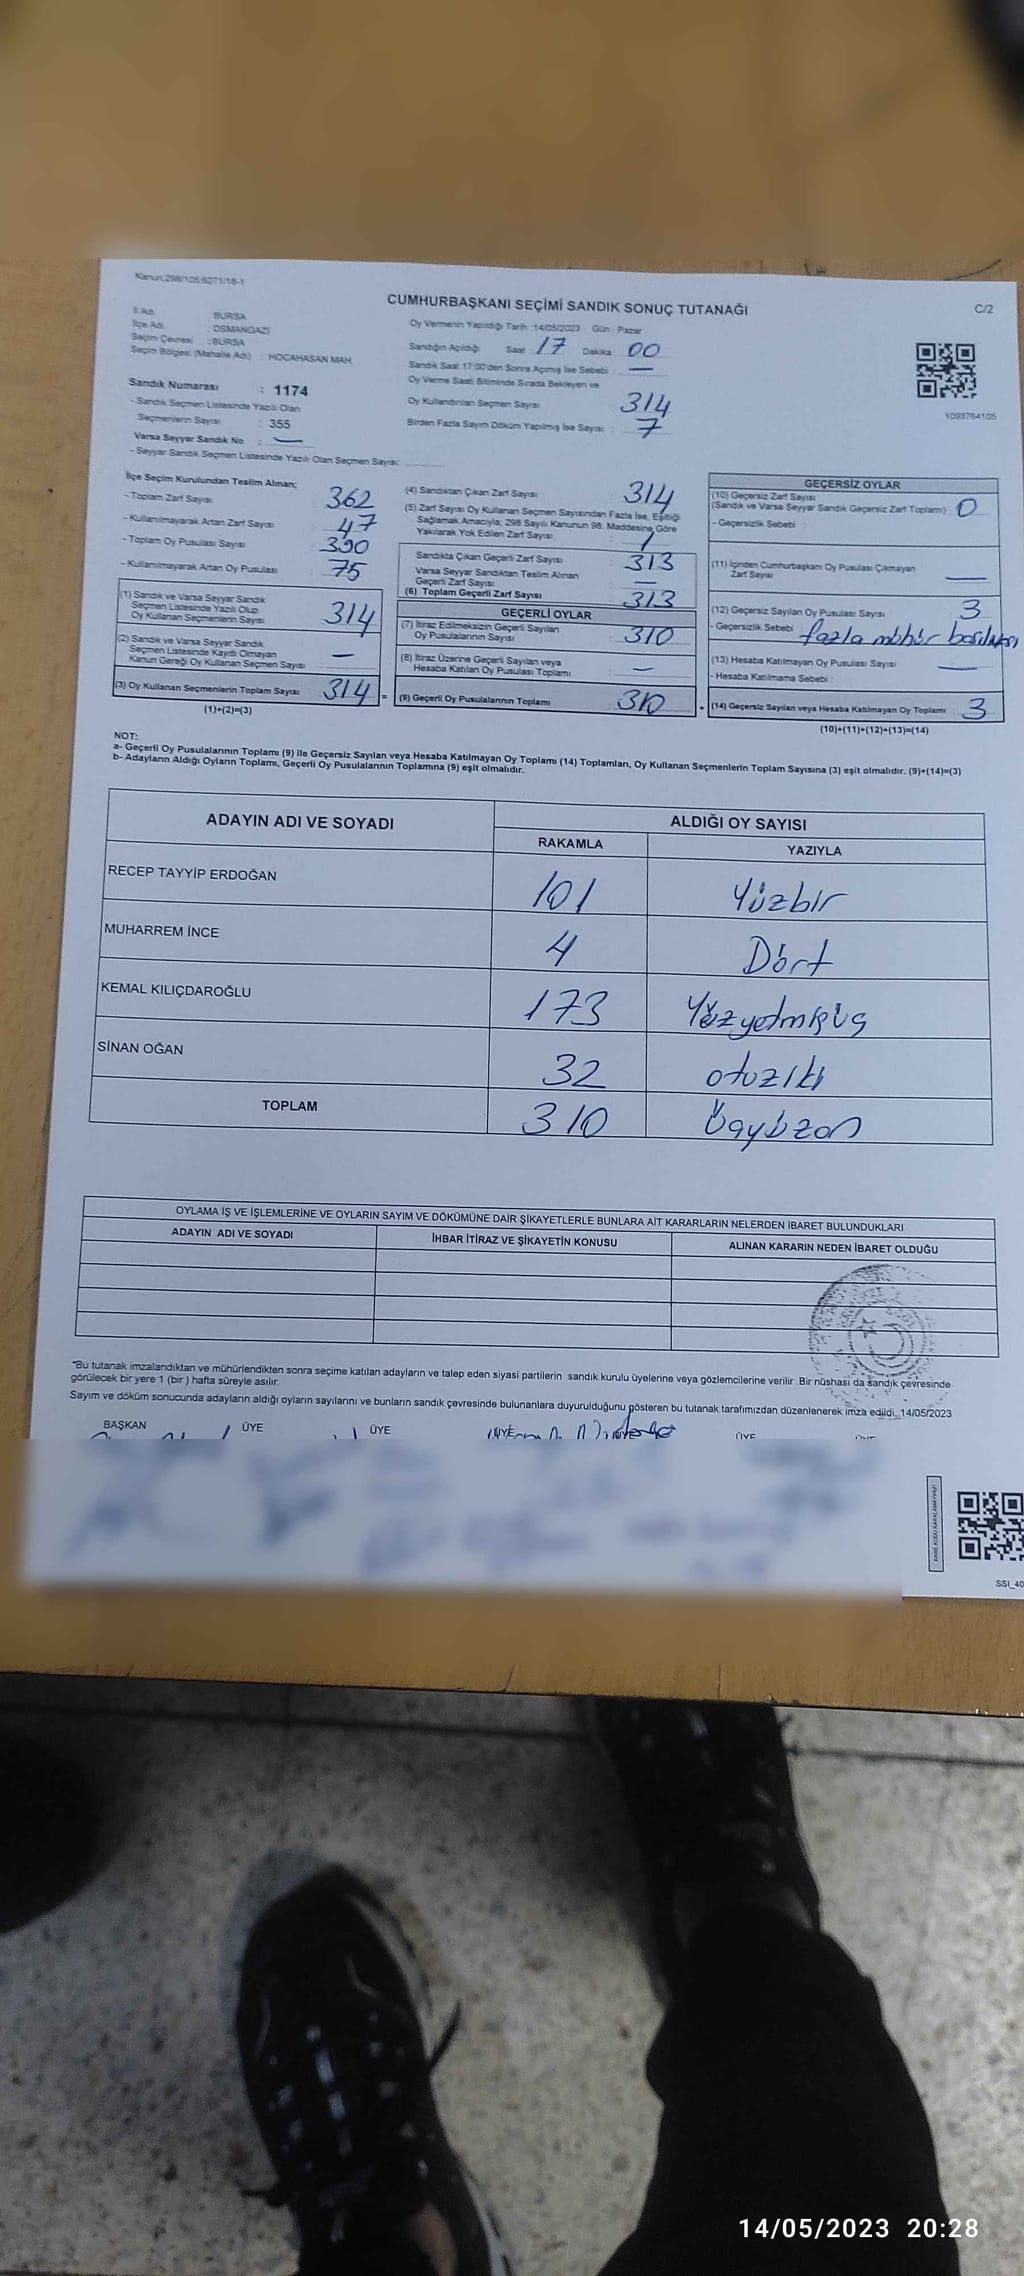 Kanun;298/105;6271/18-1
CUMHURBAŞKANI SEÇİMİ SANDIK SONUÇ TUTANAĞI
C/2
İl Adı : BURSA
İlçe Adı : OSMANGAZİ
Seçim Çevresi : BURSA
Seçim Bölgesi (Mahalle Adı) : HOCAHASAN MAH.
Oy Vermenin Yapıldığı Tarih :14/05/2023 Gün : Pazar
Sandığın Açıldığı Saat : 17 Dakika : 00
Sandık Saat 17:00'den Sonra Açımış İse Sebebi : —
Oy Verme Saati Bitiminde Sırada Bekleyen ve
Oy Kullandırılan Seçmen Sayısı : 314
Birden Fazla Sayım Döküm Yapılmış İse Sayısı : 7
1093764105
Sandık Numarası : 1174
- Sandık Seçmen Listesinde Yazılı Olan
Seçmenlerin Sayısı : 355
Varsa Seyyar Sandık No : —
- Seyyar Sandık Seçmen Listesinde Yazılı Olan Seçmen Sayısı:
İlçe Seçim Kurulundan Teslim Alınan;
- Toplam Zarf Sayısı : 362
- Kullanılmayarak Artan Zarf Sayısı : 47
- Toplam Oy Pusulası Sayısı : 390
- Kullanılmayarak Artan Oy Pusulası : 75
(1) Sandık ve Varsa Seyyar Sandık
Seçmen Listesinde Yazılı Olup
Oy Kullanan Seçmenlerin Sayısı : 314
(2) Sandık ve Varsa Seyyar Sandık
Seçmen Listesinde Kayıtlı Olmayan
Kanun Gereği Oy Kullanan Seçmen Sayısı : —
(3) Oy Kullanan Seçmenlerin Toplam Sayısı : 314 =
(1)+(2)=(3)
(4) Sandıktan Çıkan Zarf Sayısı : 314
(5) Zarf Sayısı Oy Kullanan Seçmen Sayısından Fazla İse, Eşitliği
Sağlamak Amacıyla; 298 Sayılı Kanunun 98. Maddesine Göre
Yakılarak Yok Edilen Zarf Sayısı : 1
Sandıkta Çıkan Geçerli Zarf Sayısı : 313
Varsa Seyyar Sandıktan Teslim Alınan
Geçerli Zarf Sayısı : —
(6) Toplam Geçerli Zarf Sayısı : 313
GEÇERLİ OYLAR
(7) İtiraz Edilmeksizin Geçerli Sayılan
Oy Pusulalarının Sayısı : 310
(8) İtiraz Üzerine Geçerli Sayılan veya
Hesaba Katılan Oy Pusulası Toplamı : —
(9) Geçerli Oy Pusulalarının Toplamı : 310 +
GEÇERSİZ OYLAR
(10) Geçersiz Zarf Sayısı
(Sandık ve Varsa Seyyar Sandık Geçersiz Zarf Toplamı) : 0
- Geçersizlik Sebebi :
(11) İçinden Cumhurbaşkanı Oy Pusulası Çıkmayan
Zarf Sayısı : —
(12) Geçersiz Sayılan Oy Pusulası Sayısı : 3
- Geçersizlik Sebebi : fazla mühür basılması
(13) Hesaba Katılmayan Oy Pusulası Sayısı : —
- Hesaba Katılmama Sebebi :
(14) Geçersiz Sayılan veya Hesaba Katılmayan Oy Toplamı : 3
(10)+(11)+(12)+(13)=(14)
NOT:
a- Geçerli Oy Pusulalarının Toplamı (9) ile Geçersiz Sayılan veya Hesaba Katılmayan Oy Toplamı (14) Toplamları, Oy Kullanan Seçmenlerin Toplam Sayısına (3) eşit olmalıdır. (9)+(14)=(3)
b- Adayların Aldığı Oyların Toplamı, Geçerli Oy Pusulalarının Toplamına (9) eşit olmalıdır.
ADAYIN ADI VE SOYADI ALDIĞI OY SAYISI
RAKAMLA YAZIYLA
RECEP TAYYİP ERDOĞAN 101 Yüzbir
MUHARREM İNCE 4 Dört
KEMAL KILIÇDAROĞLU 173 Yüzyetmişüç
SİNAN OĞAN 32 otuziki
TOPLAM 310 üçyüzon
OYLAMA İŞ VE İŞLEMLERİNE VE OYLARIN SAYIM VE DÖKÜMÜNE DAİR ŞİKAYETLERLE BUNLARA AİT KARARLARIN NELERDEN İBARET BULUNDUKLARI
ADAYIN ADI VE SOYADI İHBAR İTİRAZ VE ŞİKAYETİN KONUSU ALINAN KARARIN NEDEN İBARET OLDUĞU
*Bu tutanak imzalandıktan ve mühürlendikten sonra seçime katılan adayların ve talep eden siyasi partilerin sandık kurulu üyelerine veya gözlemcilerine verilir .Bir nüshası da sandık çevresinde
görülecek bir yere 1 (bir ) hafta süreyle asılır.
Sayım ve döküm sonucunda adayların aldığı oyların sayılarını ve bunların sandık çevresinde bulunanlara duyurulduğunu gösteren bu tutanak tarafımızdan düzenlenerek imza edildi. 14/05/2023
BAŞKAN ÜYE ÜYE ÜYE ÜYE ÜYE
SSI_40
14/05/2023 20:28